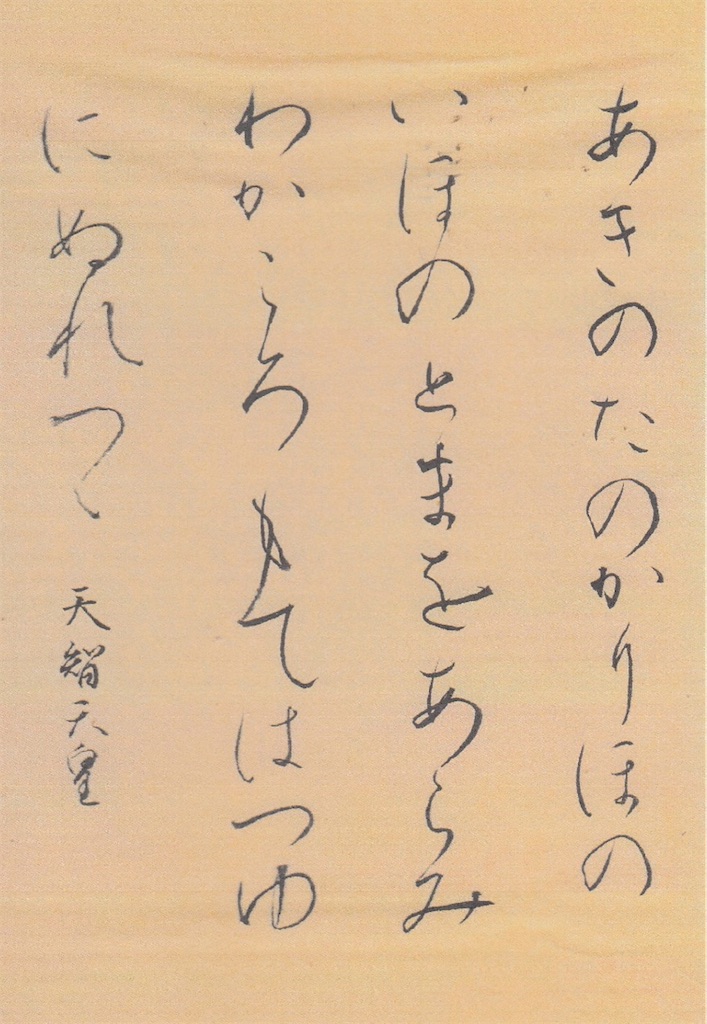 あきのたのかりほの
いほのとまをあらみ
わかころもてはつゆ
にぬれつゝ 天智天皇